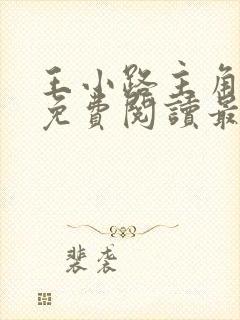 王小路主角
免費閱讀最
裴袭